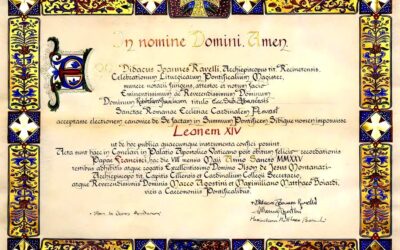 In nomine Domini. Amen
Ego Didacus Ioannes Ravelli, Archiepiscopus tit. Recinetensis,
Celebrationum Liturgicarum Pontificalium Magister,
munere notarii fungens, attestor et notum facio
Eminentissimum ac Reverendissimum Dominum
Dominum titulo Ecc. Sub. Albanensis
Sanctae Romanae Ecclesiae Cardinalem Prevost
acceptasse electionem canonice de Se factam in Summum Pontificem Sibique nomen imposuisse
Leonem XIV
ut de hoc publica quaecumque instrumenta confici possint.
Acta sunt haec in Conclavi in Palatio Apostolico Vaticano post obitum felicis recordationis
Papae Francisci, hac die VIII mensis Maii Anno Sancto MMXXV
testibus adhibitis atque rogatis Excellentissimo Domino Ilson de Jesus Montanari
Archiepiscopo tit. Capitis Cillensis et Cardinalium Collegii Secretario,
atque Reverendissimis Dominis Marco Agostini et Maximiliano Matthaeo Boiardi,
viris a Caeremoniis Pontificalibus.